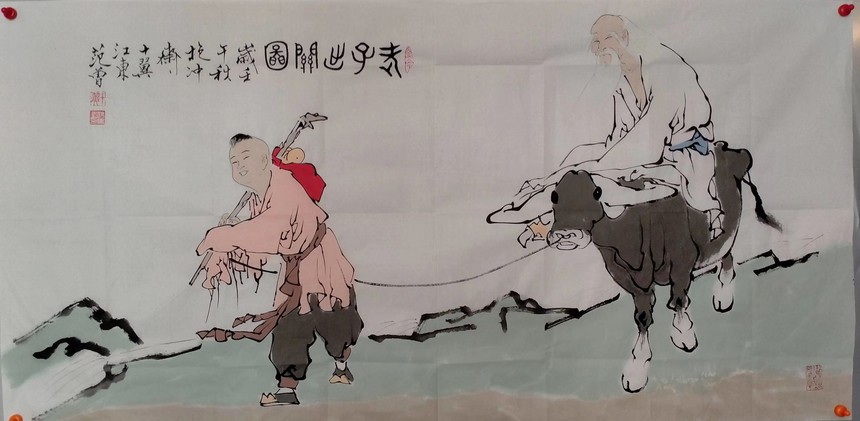 老子出關圖
歲壬
午秋
抱冲
齋
十翼
江東
范曾